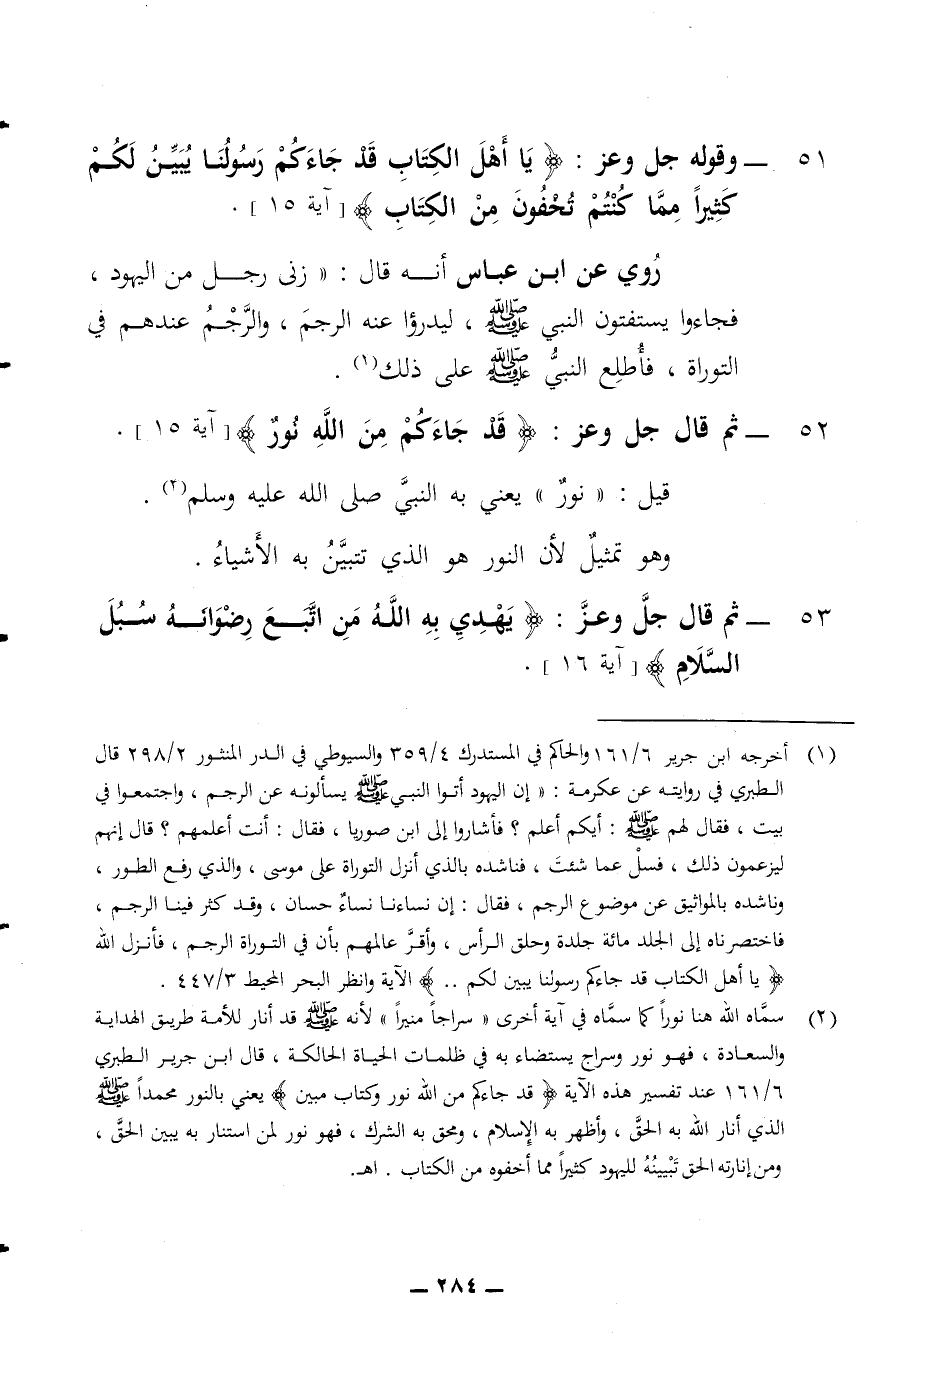 ٥١ ــ وقوله جل وعز : ﴿ يَا أَهْلَ الكِتَابِ قَدْ جَاءَكُمْ رَسُولُنَا يُبَيِّنُ لَكُمْ
كَثِيراً مِمَّا كُنْتُمْ تُخْفُونَ مِنْ الكِتَابِ ﴾ [ آية ١٥ ] .
رُوي عن ابن عباس أنه قال : « زنى رجل من اليهود ،
فجاءوا يستفتون النبي ﷺ ، ليدرؤا عنه الرجمَ ، والرَّجْمُ عندهم في
التوراة ، فأُطلِع النبيُّ ﷺ على ذلك(١) .
٥٢ ــ ثم قال جل وعز : ﴿ قَدْ جَاءَكُمْ مِنَ اللَّهِ نُورٌ ﴾ [ آية ١٥ ] .
قيل : « نورٌ » يعني به النبيَّ صلى الله عليه وسلم(٢) .
وهو تمثيلٌ لأن النور هو الذي تتبيَّنُ به الأَشياءُ .
٥٣ ــ ثم قال جلَّ وعزَّ : ﴿ يَهْدِي بِهِ اللَّهُ مَنِ اتَّبَعَ رِضْوَانَهُ سُبُلَ
السَّلَامِ ﴾ [ آية ١٦ ] .
(١) أخرجه ابن جرير ١٦١/٦ والحاكم في المستدرك ٣٥٩/٤ والسيوطي في الدر المنثور ٢٩٨/٢ قال
الطبري في روايته عن عكرمة : « إن اليهود أتوا النبي ﷺ يسألونه عن الرجم ، واجتمعوا في
بيت ، فقال لهم ﷺ : أيكم أعلم ؟ فأشاروا إلى ابن صوريا ، فقال : أنت أعلمهم ؟ قال إنهم
ليزعمون ذلك ، فسلْ عما شئتَ ، فناشده بالذي أنزل التوراة على موسى ، والذي رفع الطور ،
وناشده بالمواثيق عن موضوع الرجم ، فقال : إن نساءنا نساءٌ حسان ، وقد كثر فينا الرجم ،
فاختصرناه إلى الجلد مائة جلدة وحلق الرأس ، وأقرَّ عالمهم بأن في التوراة الرجم ، فأنزل الله
﴿ يا أهل الكتاب قد جاءكم رسولنا يبين لكم .. ﴾ الآية وانظر البحر المحيط ٤٤٧/٣ .
(٢) سمَّاه الله هنا نوراً كما سمَّاه في آية أخرى « سراجاً منيراً » لأنه ﷺ قد أنار للأمة طريق الهداية
والسعادة ، فهو نور وسراج يستضاء به في ظلمات الحياة الحالكة ، قال ابن جرير الطبري
١٦١/٦ عند تفسير هذه الآية ﴿ قد جاءكم من الله نور وكتاب مبين ﴾ يعني بالنور محمداً ﷺ
الذي أنار الله به الحقَّ ، وأظهر به الإسلام ، ومحق به الشرك ، فهو نور لمن استنار به يبين الحقَّ ،
ومن إنارته الحق تَبْيينُهُ لليهود كثيراً مما أخفوه من الكتاب . اهـ.
ــ ٢٨٤ ــ